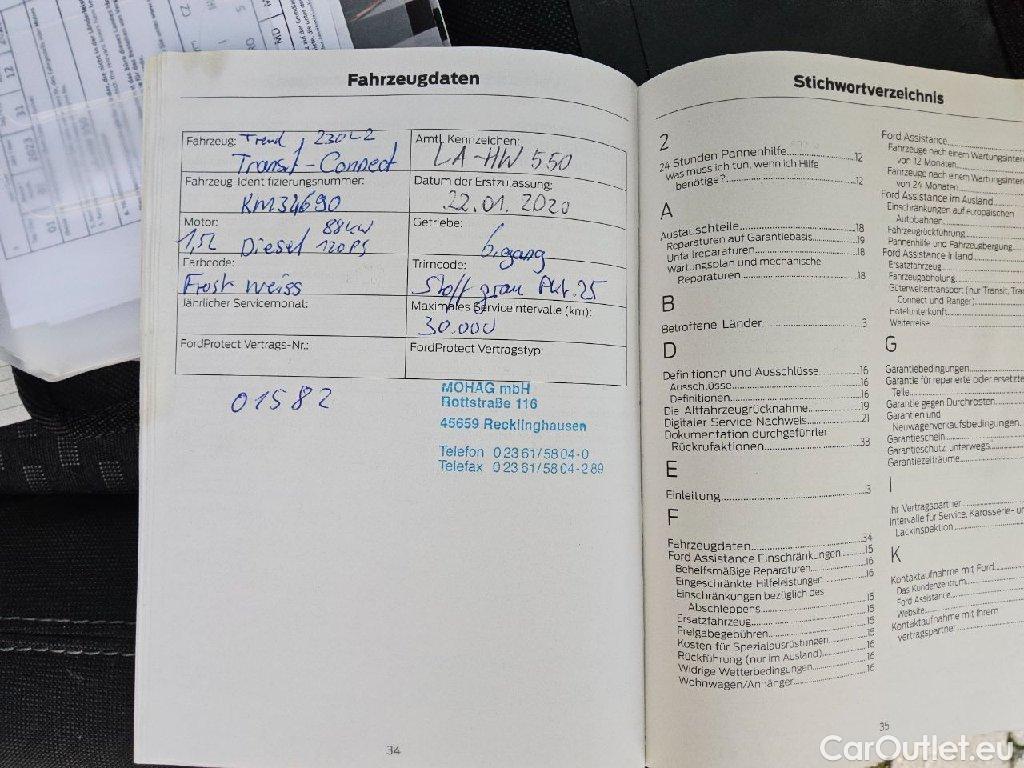 Fahrzeugdaten
Fahrzeug: Trend, 230L2
Transit-Connect
Amtl. Kennzeichen:
LA-HW 550
Fahrzeug-Identifizierungsnummer:
KM34690
Datum der Erstzulassung:
22.01.2020
Motor: 88kW
1,5L Diesel 120PS
Getriebe:
6.gang
Farbcode:
Frost weiss
Trimcode:
Stoff grau
Jährlicher Servicemonat:
Maximales Serviceintervalle (km):
30.000
FordProtect Vertrags-Nr.:
FordProtect Vertragstyp:
01582
MOHAG mbH
Rottstraße 116
45659 Recklinghausen
Telefon 0 23 61/58 04-0
Telefax 0 23 61/58 04-2 89
34
Stichwortverzeichnis
2
24 Stunden Pannenhilfe 12
Was muss ich tun, wenn ich Hilfe
benötige? 12
A
Austauschteile 18
Reparaturen auf Garantiebasis 19
Unfallreparaturen 18
Wartungsplan und mechanische
Reparaturen 18
B
Betroffene Länder 3
D
Definitionen und Ausschlüsse 16
Ausschlüsse 16
Definitionen 16
Die Altfahrzeugrücknahme 19
Digitaler Service Nachweis 21
Dokumentation durchgeführter
Rückrufaktionen 33
E
Einleitung 3
F
Fahrzeugdaten 34
Ford Assistance Einschränkungen 15
Behelfsmäßige Reparaturen 16
Eingeschränkte Hilfeleistungen 16
Einschränkungen bezüglich des
Abschleppens 15
Ersatzfahrzeug 15
Freigabegebühren 15
Kosten für Spezialausrüstungen 15
Rückführung (nur im Ausland) 16
Widrige Wetterbedingungen 16
Wohnwagen/Anhänger 16
Ford Assistance
Fahrzeuge nach einem Wartungsinterv
von 12 Monaten
Fahrzeuge nach einem Wartungsinterv
von 24 Monaten
Ford Assistance im Ausland
Einschränkungen auf europäischen
Autobahnen
Fahrzeugrückführung
Pannenhilfe und Fahrzeugbergung
Ford Assistance Inland
Ersatzfahrzeug
Fahrzeugabholung
Güterweitertransport (nur Transit, Tran
Connect und Ranger)
Hotelunterkunft
Weiterreise
G
Garantiebedingungen
Garantie für reparierte oder ersetzte
Teile
Garantie gegen Durchrosten
Garantien und
Neuwagenverkaufsbedingungen
Garantieschein
Garantieschutz unterwegs
Garantiezeiträume
I
Ihr Vertragspartner
Intervalle für Service, Karosserie- un
Lackinspektion
K
Kontaktaufnahme mit Ford
Das Kundenzentrum
Ford Assistance
Website
Kontaktaufnahme mit Ihrem
Vertragspartner
35
CarOutlet.eu